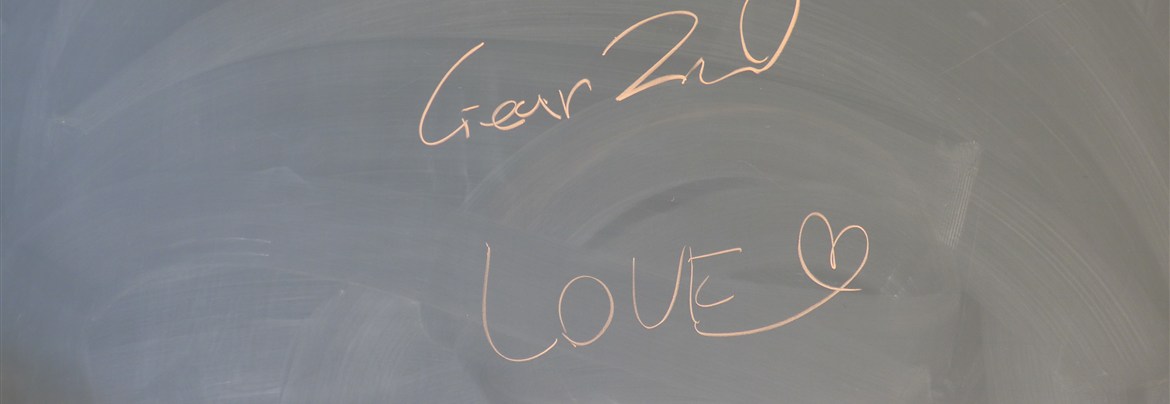 Gear 2nd
LOVE